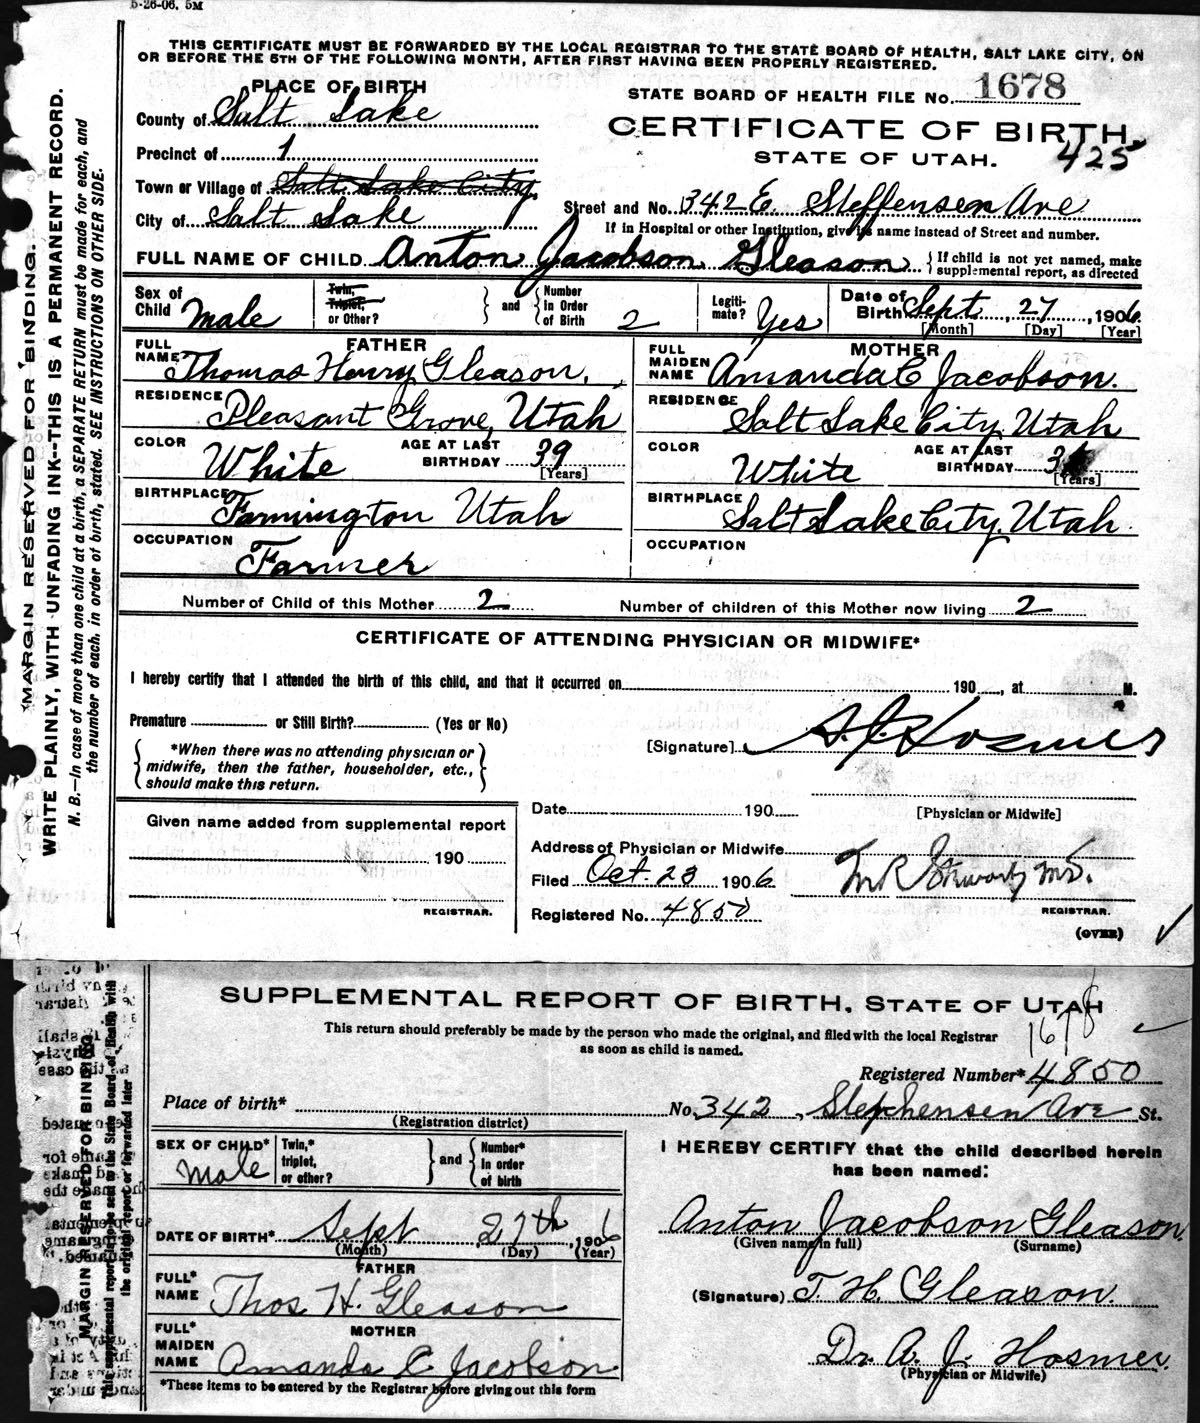 5-26-06. 5M
THIS CERTIFICATE MUST BE FORWARDED BY THE LOCAL REGISTRAR TO THE STATE BOARD OF HEALTH, SALT LAKE CITY, ON
OR BEFORE THE 5TH OF THE FOLLOWING MONTH, AFTER FIRST HAVING BEEN PROPERLY REGISTERED.
MARGIN RESERVED FOR BINDING.
WRITE PLAINLY, WITH UNFADING INK--THIS IS A PERMANENT RECORD.
N. B.—In case of more than one child at a birth, a SEPARATE RETURN must be made for each, and
the number of each, in order of birth, stated. SEE INSTRUCTIONS ON OTHER SIDE.
PLACE OF BIRTH
STATE BOARD OF HEALTH FILE No. 1678
County of Salt Lake
CERTIFICATE OF BIRTH.
425
Precinct of 1
STATE OF UTAH.
Town or Village of Salt Lake City
City of Salt Lake
Street and No. 342 E. Steffensen Ave
If in Hospital or other Institution, give its name instead of Street and number.
FULL NAME OF CHILD Anton Jacobson Gleason
If child is not yet named, make
supplemental report, as directed
Sex of Child Male
Twin, Triplet, or Other? and Number In Order of Birth 2
Legitimate? Yes
Date of Birth Sept, 27, 1906
[Month] [Day] [Year]
FATHER
FULL NAME Thomas Henry Gleason.
RESIDENCE Pleasant Grove, Utah
COLOR White
AGE AT LAST BIRTHDAY 39
[Years]
BIRTHPLACE Farmington Utah
OCCUPATION Farmer
MOTHER
FULL MAIDEN NAME Amanda C Jacobson.
RESIDENCE Salt Lake City, Utah
COLOR White
AGE AT LAST BIRTHDAY
[Years]
BIRTHPLACE Salt Lake City, Utah.
OCCUPATION
Number of Child of this Mother 2
Number of children of this Mother now living 2
CERTIFICATE OF ATTENDING PHYSICIAN OR MIDWIFE*
I hereby certify that I attended the birth of this child, and that it occurred on 190 , at M.
Premature or Still Birth? (Yes or No)
[Signature] A. J. Hosmer
*When there was no attending physician or
midwife, then the father, householder, etc.,
should make this return.
Date 190
[Physician or Midwife]
Given name added from supplemental report
190
REGISTRAR.
Address of Physician or Midwife
Filed Oct. 23 1906
M.D.
REGISTRAR.
Registered No. 4850
(OVER)
SUPPLEMENTAL REPORT OF BIRTH, STATE OF UTAH
This return should preferably be made by the person who made the original, and filed with the local Registrar
as soon as child is named.
1678
MARGIN RESERVED FOR BINDING
Registered Number* 4850
Place of birth* No. 342, Stephensen Ave St.
(Registration district)
SEX OF CHILD* Male
Twin,* triplet, or other? and Number* in order of birth
DATE OF BIRTH* Sept 27th, 1906
(Month) (Day) (Year)
FATHER
FULL* NAME Thos H. Gleason
MOTHER
FULL* MAIDEN NAME Amanda C Jacobson
*These items to be entered by the Registrar before giving out this form
I HEREBY CERTIFY that the child described herein
has been named:
Anton Jacobson Gleason
(Given name in full) (Surname)
(Signature) T. H. Gleason.
Dr. A. J. Hosmer.
(Physician or Midwife)